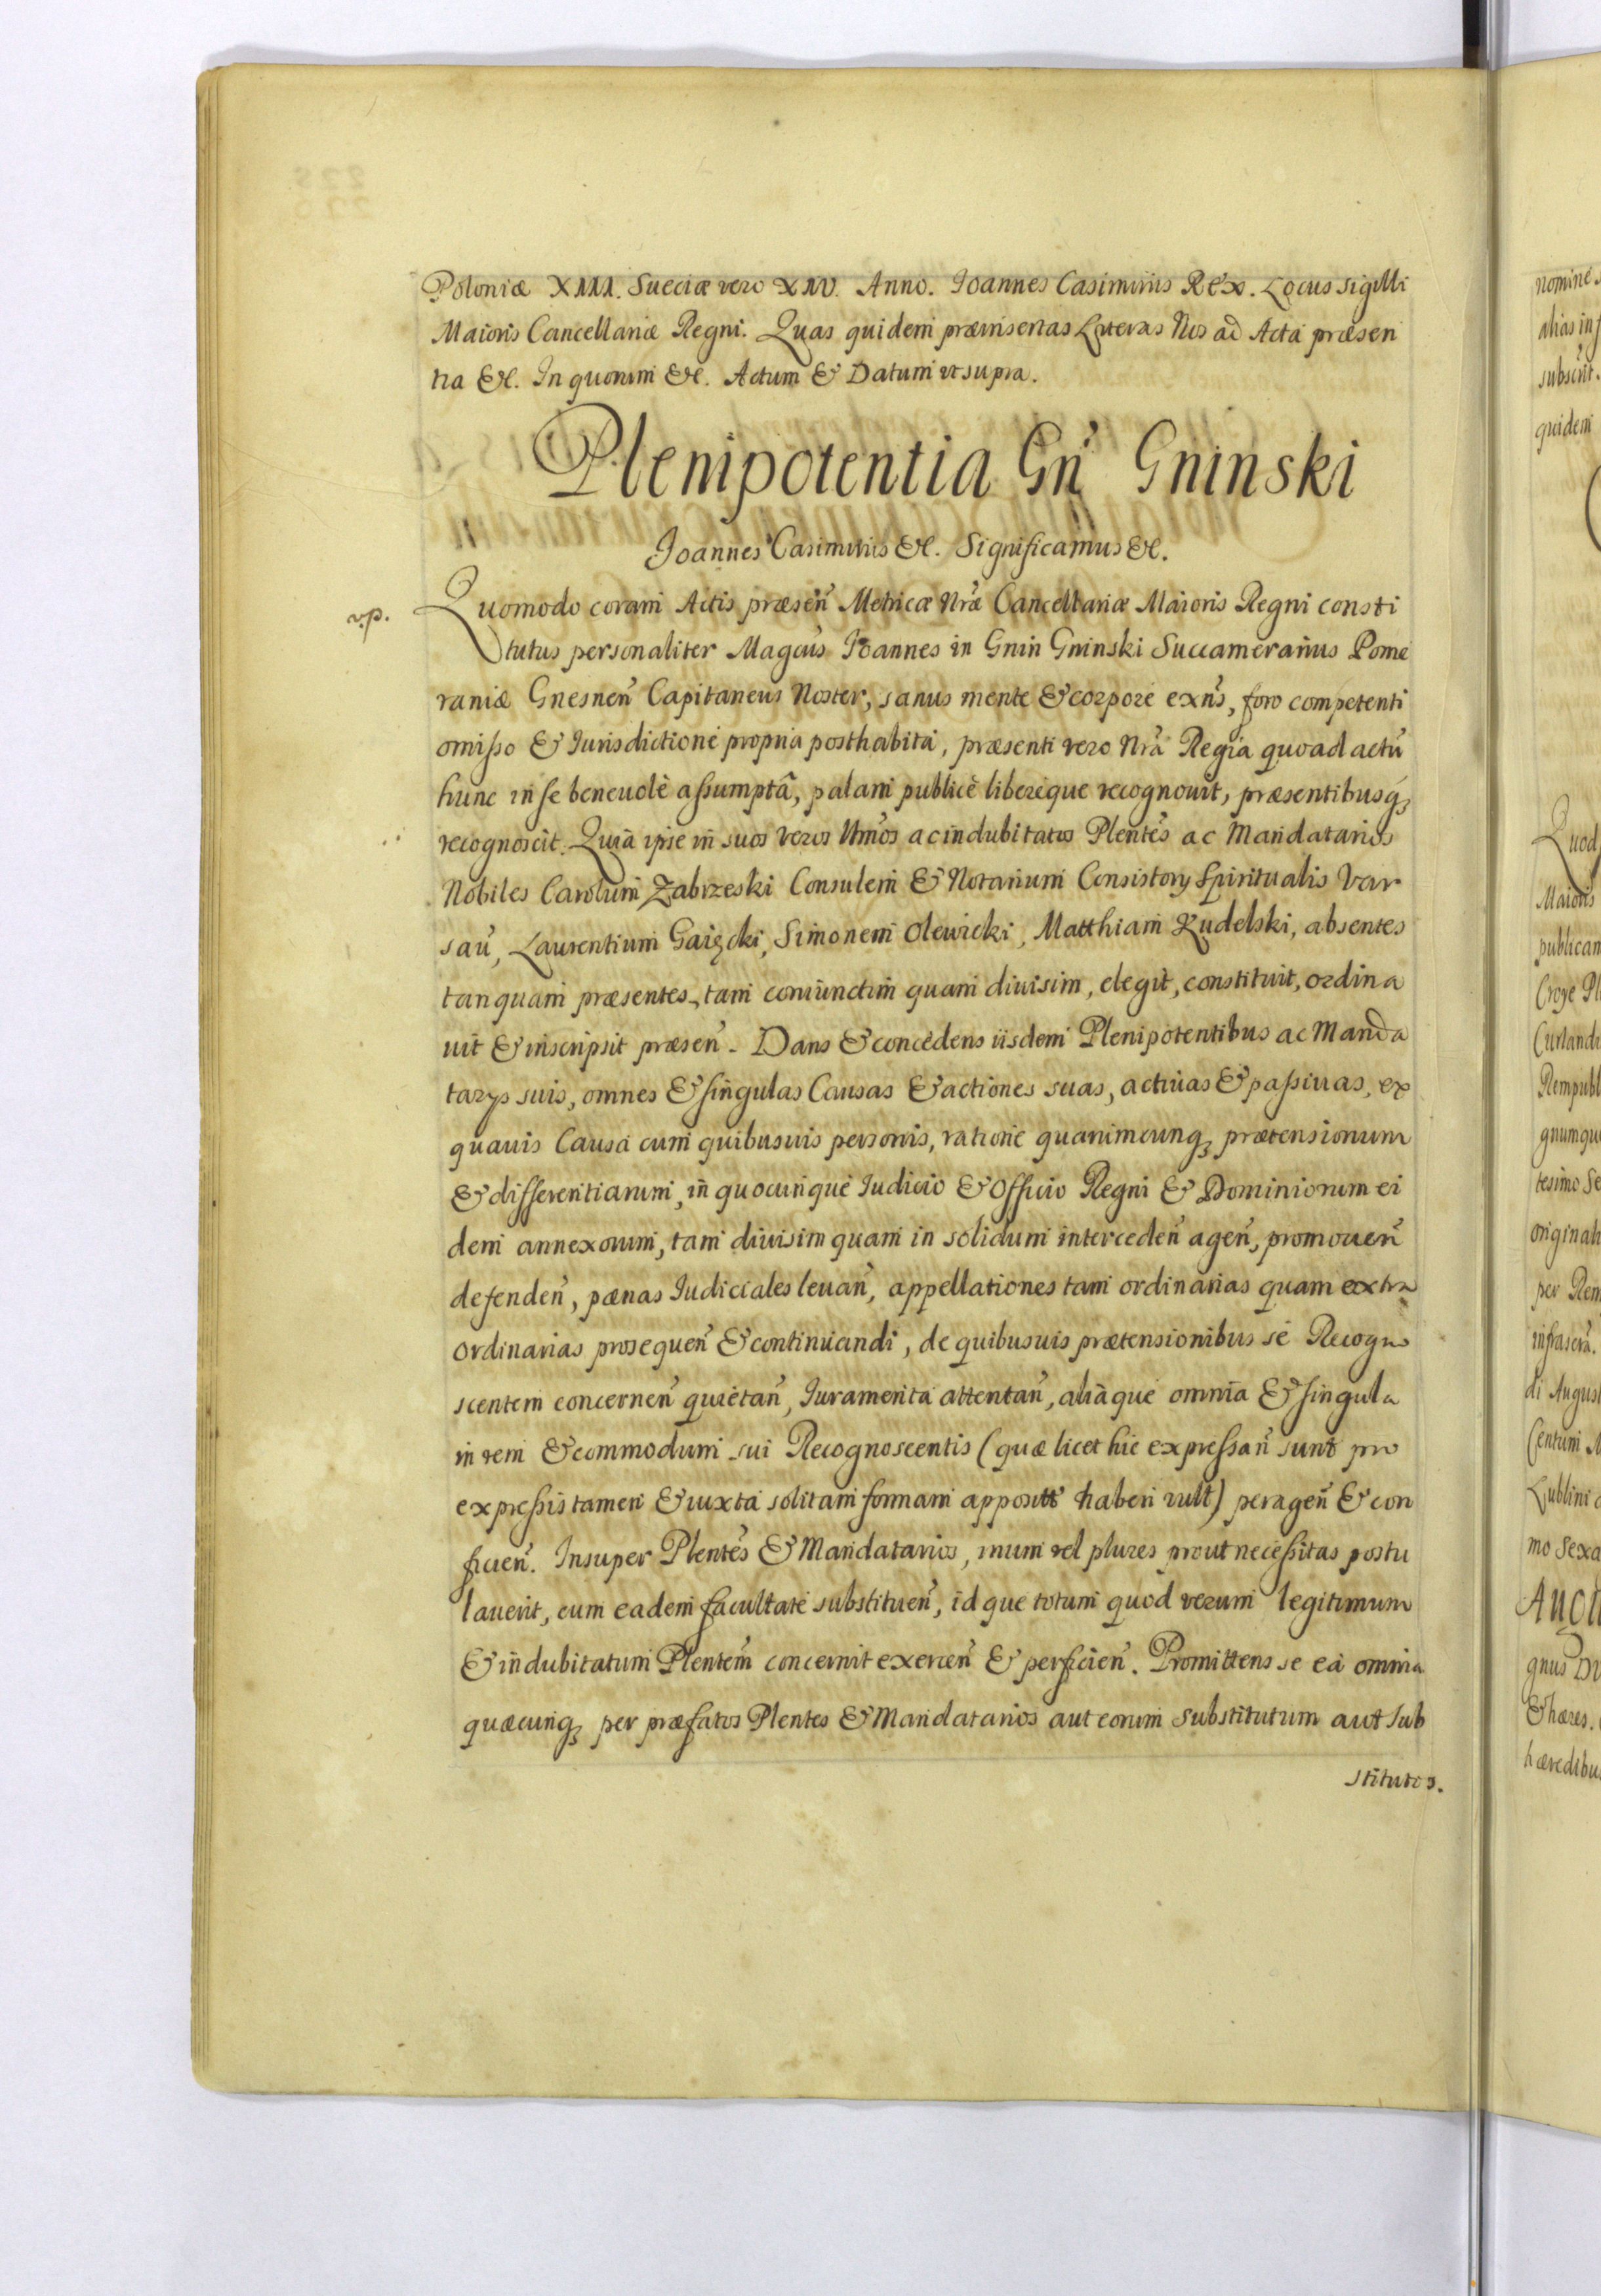 Poloniæ XIII. Sueciæ vero XIV. Anno. Ioannes Casimirus Rex. Locus sigilli
Maioris Cancellariæ Regni. Quas quidem præinsertas Literas Nos ad Acta præsen
tia &c. In quorum &c. Actum & Datum ut supra.
Plenipotentia Gñ Gninski
Ioannes Casimirus &c. Significamus &c.
v.p.
Quomodo coram Actis præseñ Metricæ Nræ Cancellariæ Maioris Regni consti
tutus personaliter Magcus Ioannes in Gnin Gninski Succamerarius Pome
raniæ Gnesneñ Capitaneus Noster, sanus mente & corpore exñs, foro competenti
omisso & Iurisdictione propria posthabita, præsenti vero Nrã Regia quoad actũ
hunc in se beneuolè assumptâ, palam publicè liberèque recognouit, præsentibusq;
recognoscit. Quia ipse in suos veros Utños ac indubitatos Plentes ac Mandatarios
Nobiles Carolum Zabrzeski Consulem & Notarium Consistory Spiritualis Var
sau, Laurentium Gaięcki, Simonem Olewicki, Matthiam Kudelski, absentes
tanquam præsentes, tam coniunctim quam diuisim, elegit, constituit, ordina
uit & inscripsit præseñ. Dans & concedens iisdem Plenipotentibus ac Manda
tarys suis, omnes & singulas Causas & actiones suas, actiuas & passiuas, ex
quauis Causa cum quibusuis personis, ratione quarumcunq; prætensionum
& differentiarum, in quocunque Iudicio & Officio Regni & Dominiorum ei
dem annexorum, tam diuisim quam in solidum intercedeñ ageñ, promoueñ
defendeñ, pænas Iudiciales leuañ, appellationes tam ordinarias quam extra
ordinarias prosequeñ & continuandi, de quibusuis prætensionibus se Recogno
scentem concerneñ quietañ, Iuramenta attentañ, aliaque omnia & singula
in rem & commodum sui Recognoscentis (quæ licet hic expressañ sunt pro
expressis tamen & iuxta solitam formam apposit haberi vult) perageñ & con
ficieñ. Insuper Plentes & Mandatarios, unum vel plures prout necessitas postu
lauerit, cum eadem facultate substitueñ, id que totum quod verum legitimum
& indubitatum Plentem concernit exerceñ & perficieñ. Promittens se ea omnia
quæcunq; per præfatos Plentes & Mandatarios aut eorum Substitutum aut Sub
stitutos.
nomine
alias in
subscrit.
quidem
Quod
Maioris
publicam
Croye Pl
Curlandi
Rempubl
gnumqu
tesimo Se
originali
per Rem
infrascra.
di August
Centum M
Lublini
mo Sexa
gnus
& hæres.
hæredibu